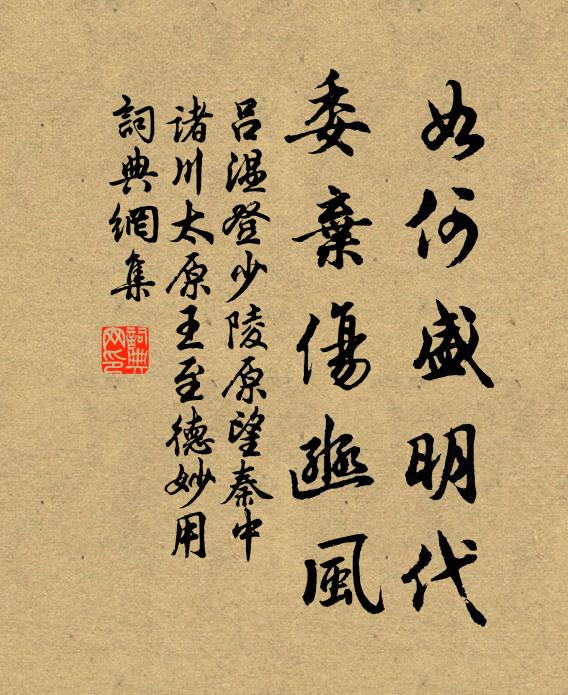 如何盛明代
委棄傷豳風
呂溫登少陵原望秦中
諸川太原王至德妙用
詞典網集
詞典网印